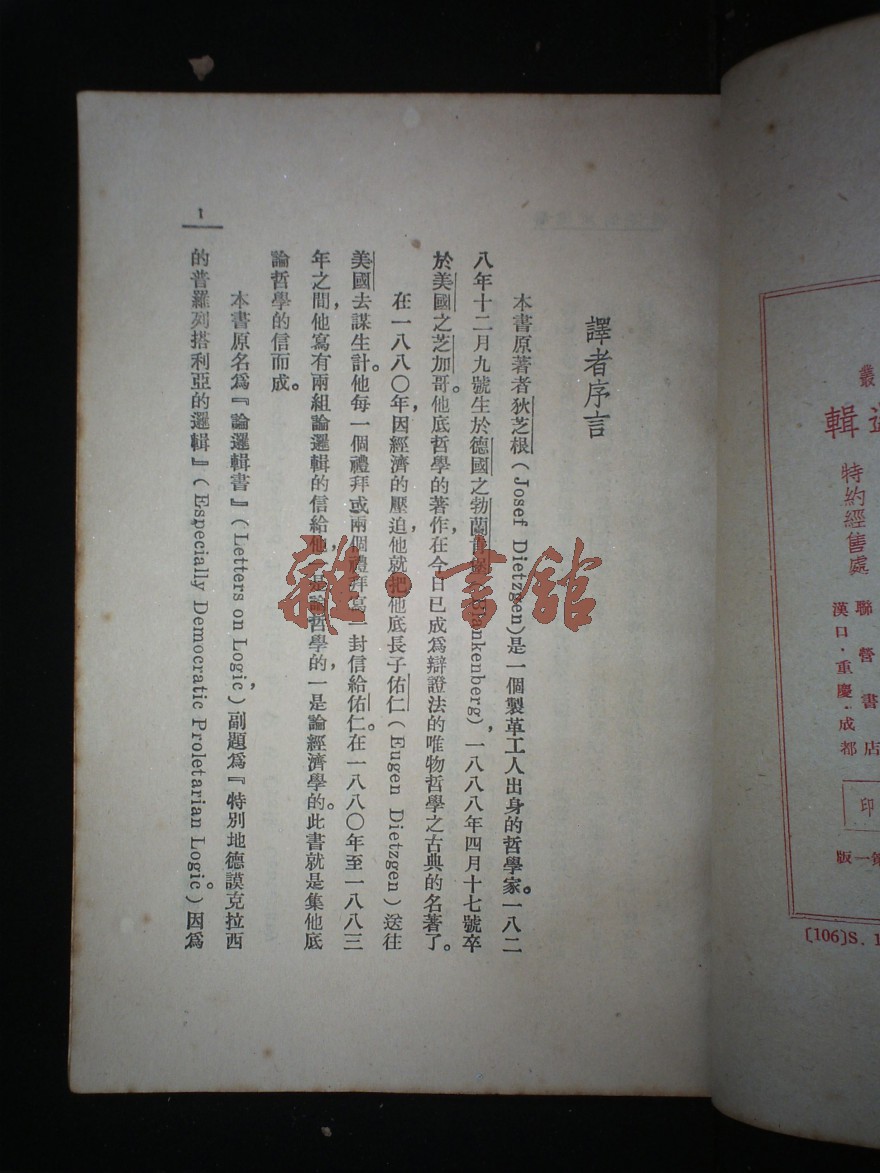 譯者序言
本書原著者狄芝根（Josef Dietzgen）是一個製革工人出身的哲學家。一八二
八年十二月九號生於德國之勃蘭 Blankenberg），一八八八年四月十七號卒
於美國之芝加哥。他底哲學的著作，在今日已成爲辯證法的唯物哲學之古典的名著了。
在一八八〇年，因經濟的壓迫，他就把他底長子佑仁（Eugen Dietzgen）送往
美國去謀生計。他每一個禮拜或兩個禮拜寫一封信給佑仁。在一八八〇年至一八八三
年之間，他寫有兩組論邏輯的信給他，一是論哲學的，一是論經濟學的。此書就是集他底
論哲學的信而成。
本書原名爲『論邏輯書』（Letters on Logic），副題爲『特別地德謨克拉西
的普羅列搭利亞的邏輯』（Especially Democratic Proletarian Logic）。因爲
1
雜·書館
叢
輯
特約經售處
聯營書店
漢口·重慶·成都
印
一版
[106]S.